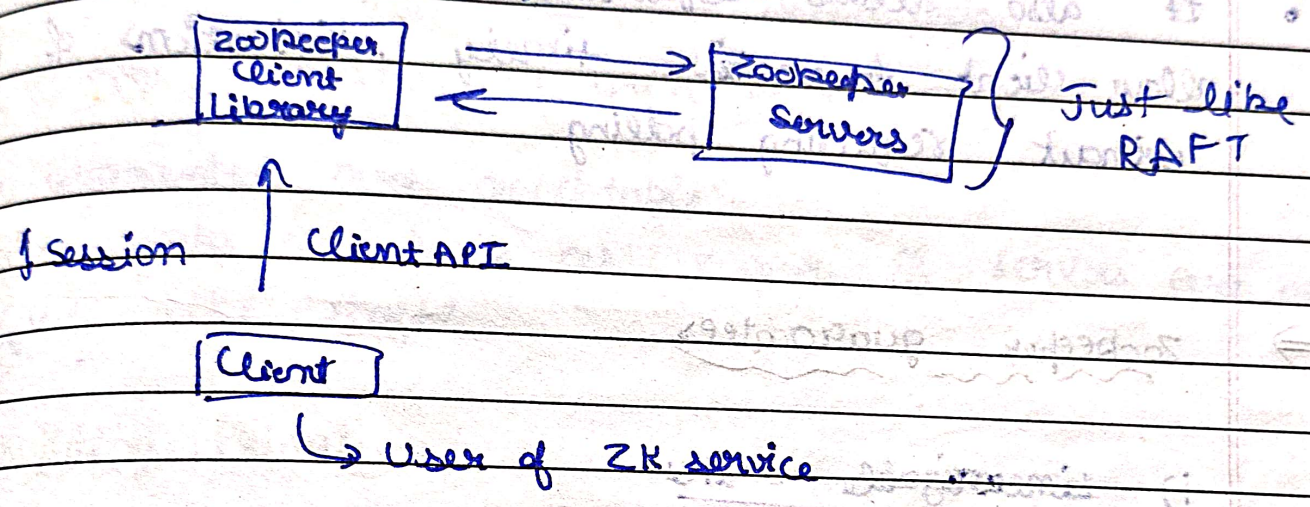 Zookeeper
Client
Library
Zookeeper
Servers
Just like
RAFT
Session
Client API
Client
User of ZK service